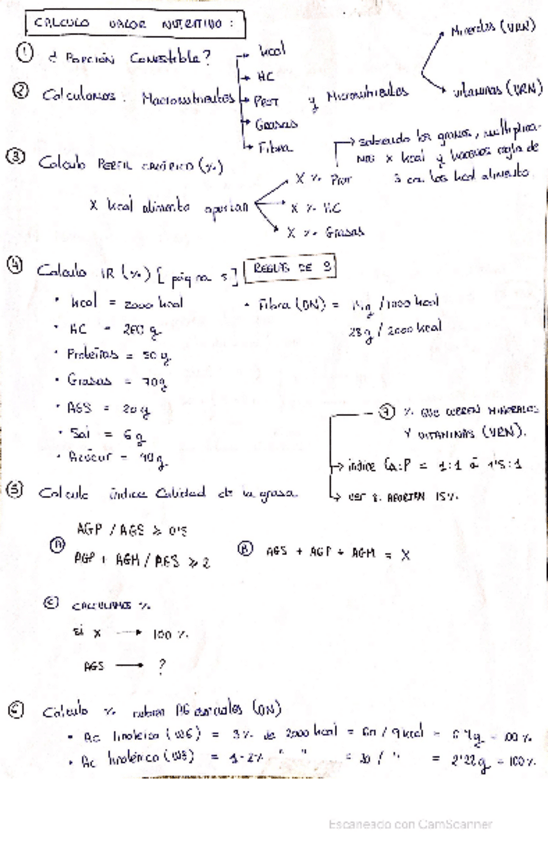 CALCULO VALOR NUTRITIVO:
① ¿ PORCIÓN Comestible?
② Calculamos: Macronutrientes
Kcal
HC
PROT
Grasas
Fibra
y Micronutrientes
Minerales (VRN)
vitaminas (VRN)
③ Calculo PERFIL CALÓRICO (%)
X kcal alimento aportan
X % Prot
X % HC
X % Grasas
sabiendo los gramos, multiplica-
mos x kcal y hacemos regla de
3 con los kcal alimento.
④ Calculo IR (%) [página 5] REGLAS DE 3
• Kcal = 2000 kcal
• HC = 260 g
• Proteínas = 50 g
• Grasas = 70g
• AGS = 20g
• Sal = 6g
• Azúcar = 90g
• Fibra (DN) = 14g / 1000 kcal
28g / 2000 kcal
⑦ % QUE CUBREN MINERALES
Y VITAMINAS (VRN).
→ índice Ca:P = 1:1 a 1'5:1
→ APORTAN 15%.
⑤ Calculo índice Calidad de la grasa
Ⓐ AGP / AGS ≥ 0'5
AGP + AGM / AGS ≥ 2
Ⓑ AGS + AGP + AGM = X
Ⓒ CALCULAMOS %
Si X → 100 %
AGS → ?
⑥ Calculo % AG esenciales (DN)
• Ac linoleico (W6) = 3% de 2000 kcal = 60 / 9 kcal = = 100 %
• Ac linolénico (W3) = 1-2% " " = 20 / " = 2'22g = 100%
Escaneado con CamScanner